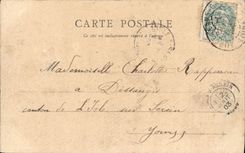 CARTE POSTALE
Ce côté est exclusivement réservé à l'adresse
Mademoiselle Charlotte Rapponeau
à Dissangis
canton de L'Isle sur Serein
Yonne